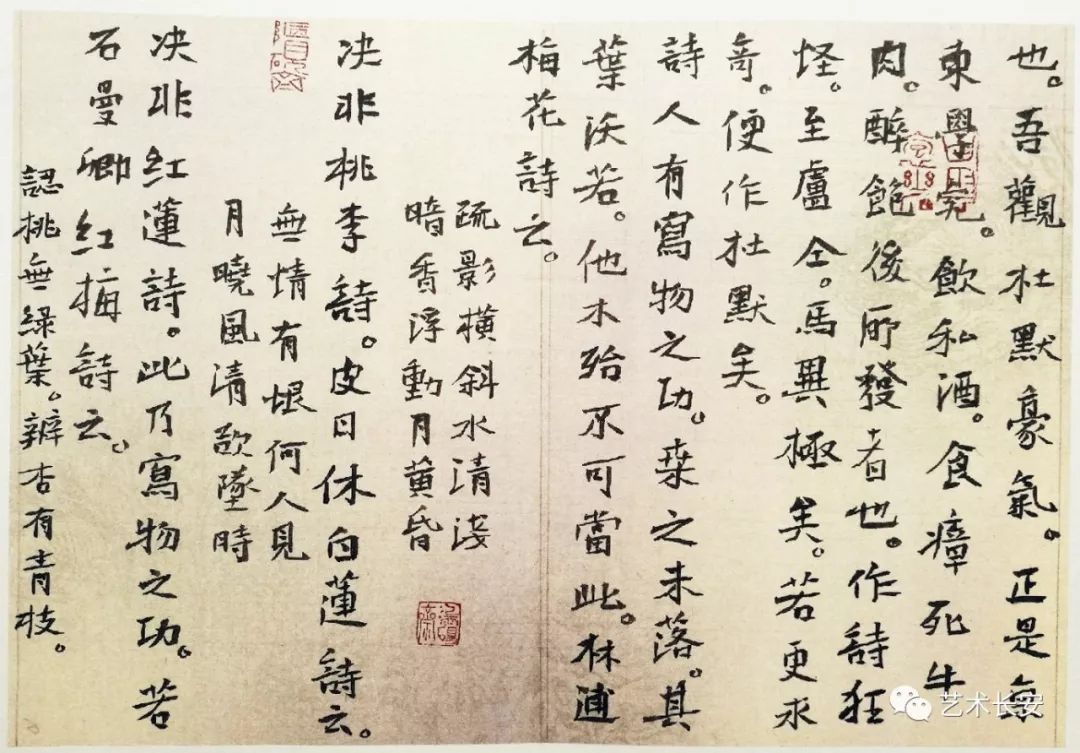 也。吾觀杜默豪氣。正是無
東學究。飲私酒。食瘴死牛
肉。醉飽後所發者也。作詩狂
怪。至盧仝。馬異極矣。若更求
奇。便作杜默矣。
詩人有寫物之功。桒之未落。其
葉沃若。他木殆不可當此。林逋
梅花詩云。
疏影橫斜水清淺
暗香浮動月黃昏
决非桃李詩。皮日休白蓮詩云。
無情有恨何人見
月曉風清欲墜時
决非紅蓮詩。此乃寫物之功。若
石曼卿紅梅詩云。
認桃無綠葉。辨杏有青枝。
艺术长安